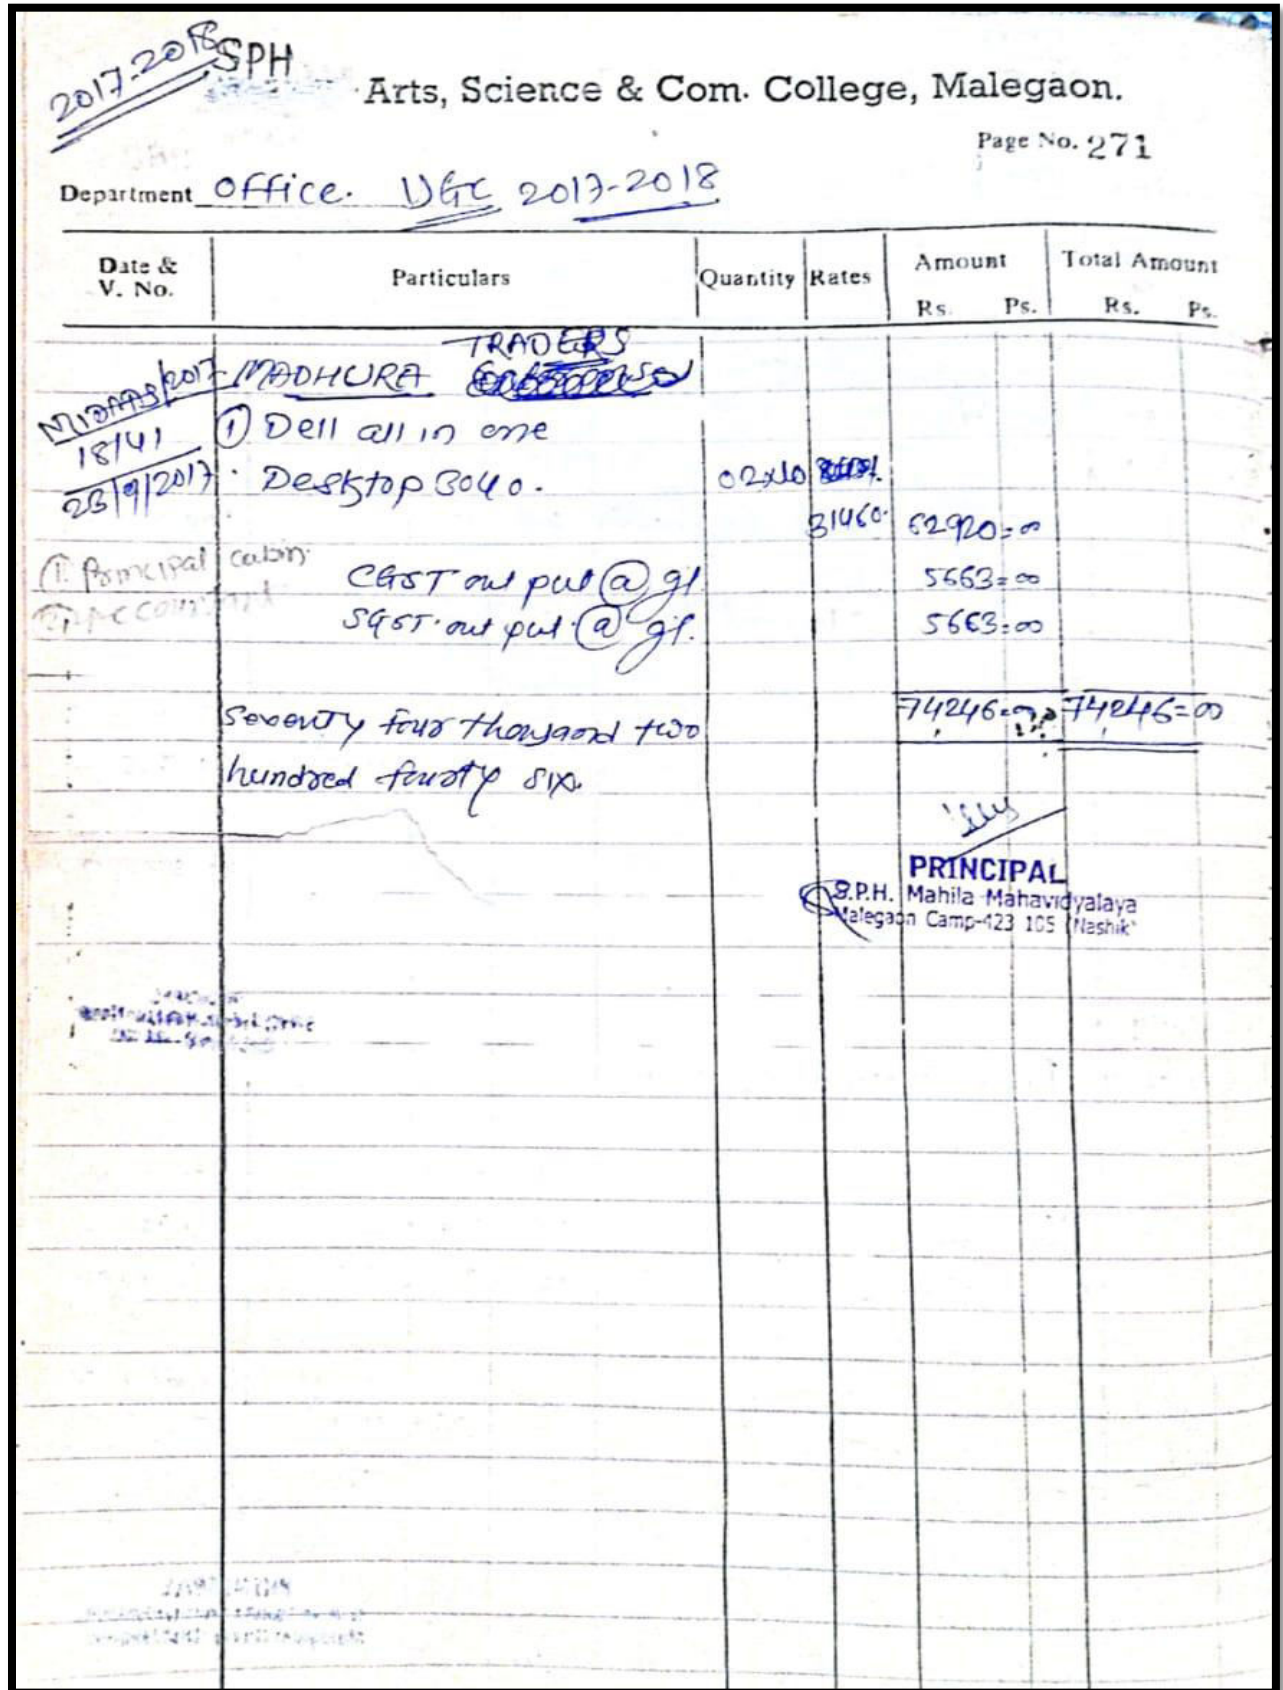 2017-2018
SPH
Arts, Science & Com. College, Malegaon.
Page No. 271
Department Office. UGC 2017-2018
Date & V. No.
Particulars
Quantity
Rates
Amount
Rs. Ps.
Total Amount
Rs. Ps.
TRADERS
MADHURA
18/41
23/9/2017
① Dell all in one
Desktop 3040.
31460. 62920=00
1. Principal cabin
CGST out put @ 9%
5663=00
SGST out put @ 9%.
5663=00
74246=00 74246=00
Seventy four thousand two
hundred fourty six.
PRINCIPAL
S.P.H. Mahila Mahavidyalaya
Malegaon Camp-423 105 (Nashik)